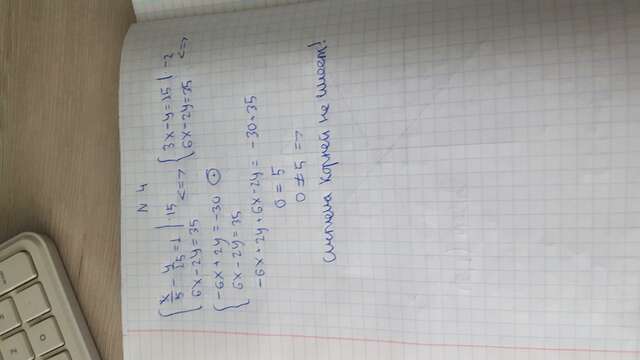 N 4
{ x/5 - y/15 = 1 | ·15 <=> { 3x - y = 15 | -2
{ 6x - 2y = 35 { 6x - 2y = 35 <=>
{ -6x + 2y = -30 ⊕
{ 6x - 2y = 35
-6x + 2y + 6x - 2y = -30 + 35
0 = 5
0 ≠ 5 =>
система корней не имеет!